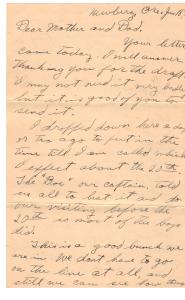 Newberg, Ore, Jan 18
Dear Mother and Dad.
Your letter
came today. I will answer
thanking you for the draft
I may not need it very badly
but it is good of you to
send it.
I dropped down here a day
or two ago to put in the
time till I am called which
I expect about the 20th.
our captain, told
us all to beat it and do
our visiting before the
20th as most of the boys
did.
This is a good bunch we
are in We dont have to go
in the line at all, and
still we can see how